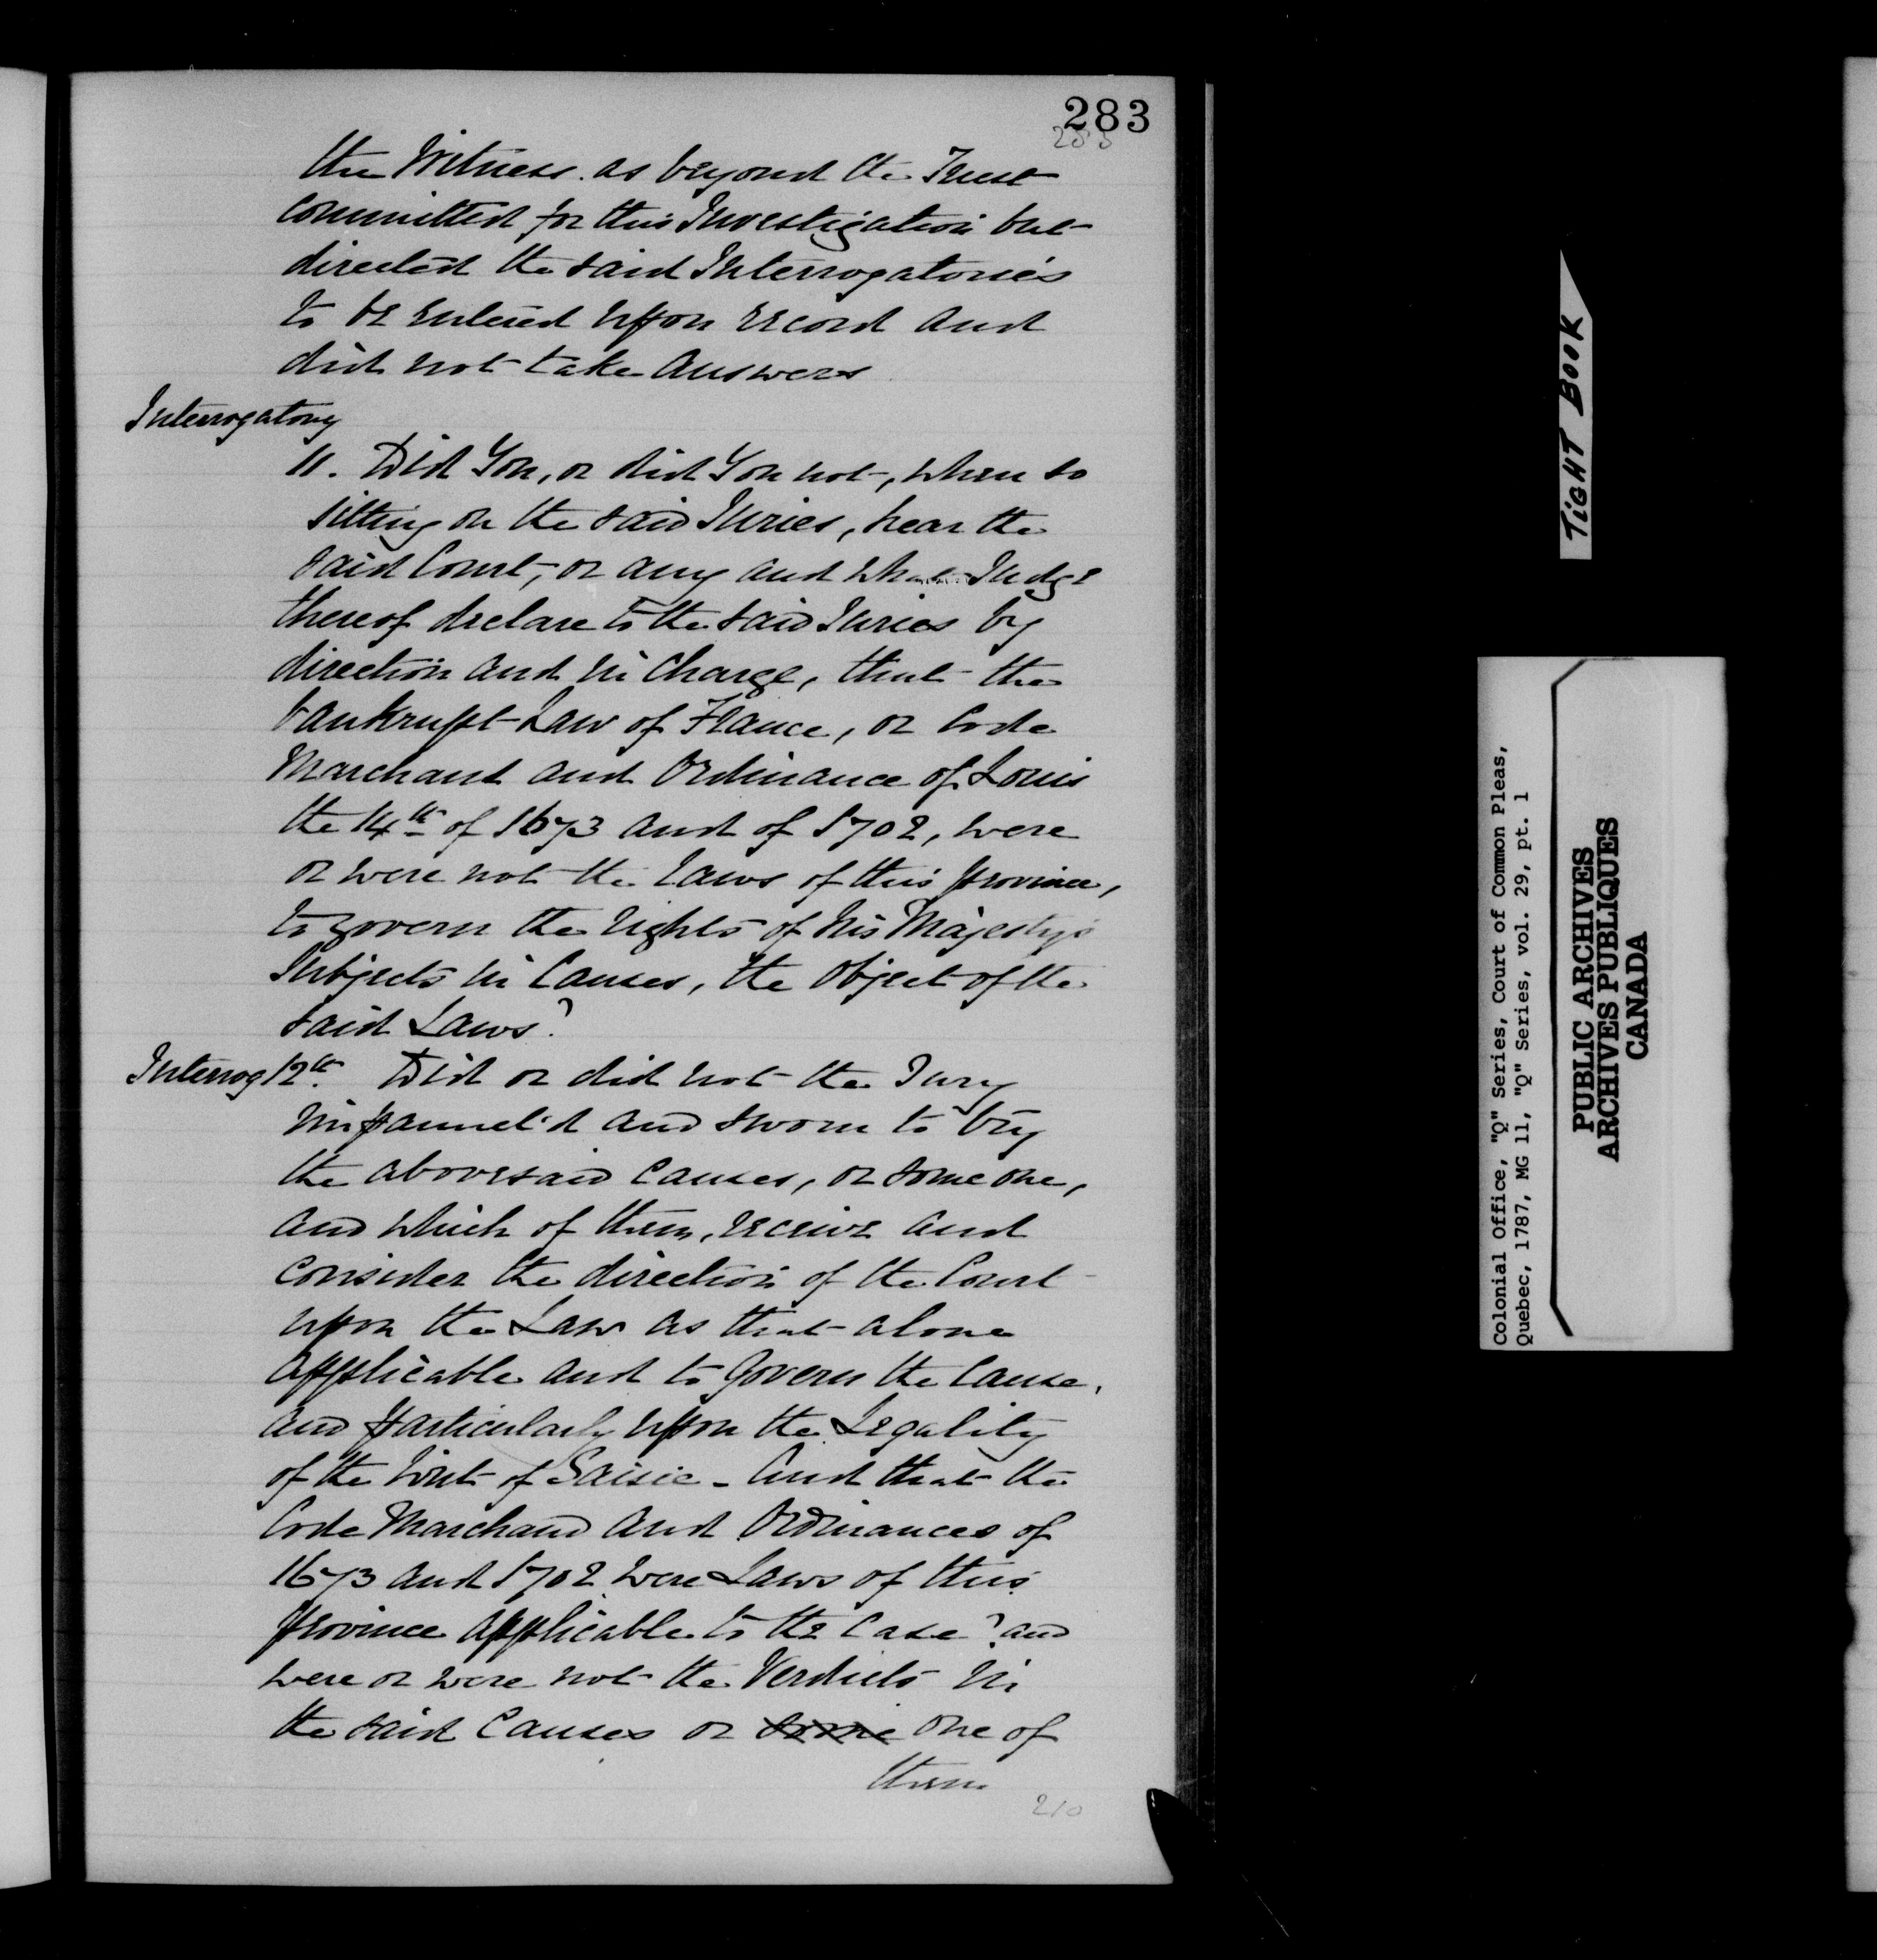 283
283
the Witness as beyond the Trust
committed for this Investigation but
directed the said Interrogatories
to be entered upon record and
did not take answers
Interrogatory
11. Did You, or did You not, when so
sitting on the said Juries, hear the
said Court, or any and what Judge
thereof declare to the said Juries by
direction and in Charge, that the
bankrupt Law of France, or Code
Marchand and Ordinance of Louis
the 14th of 1673 and of 1702, were
or were not the Laws of this province,
to govern the rights of his Majesty's
Subjects in Causes, the Object of the
said Laws?
Interrog 12th. Did or did not the Jury
impannel'd and sworn to try
the abovesaid Causes, or some one,
and which of them, receive and
consider the direction of the Court
upon the Law as that alone
applicable and to govern the Cause,
and particularly upon the Legality
of the Writ of Saisie - And that the
Code Marchand and Ordinances of
1673 and 1702 were Laws of this
province applicable to the Case? and
were or were not the Verdicts in
the said Causes or some one of
them
210
TIGHT BOOK
Colonial Office, "Q" Series, Court of Common Pleas,
Quebec, 1787, MG 11, "Q" Series, vol. 29, pt. 1
PUBLIC ARCHIVES
ARCHIVES PUBLIQUES
CANADA